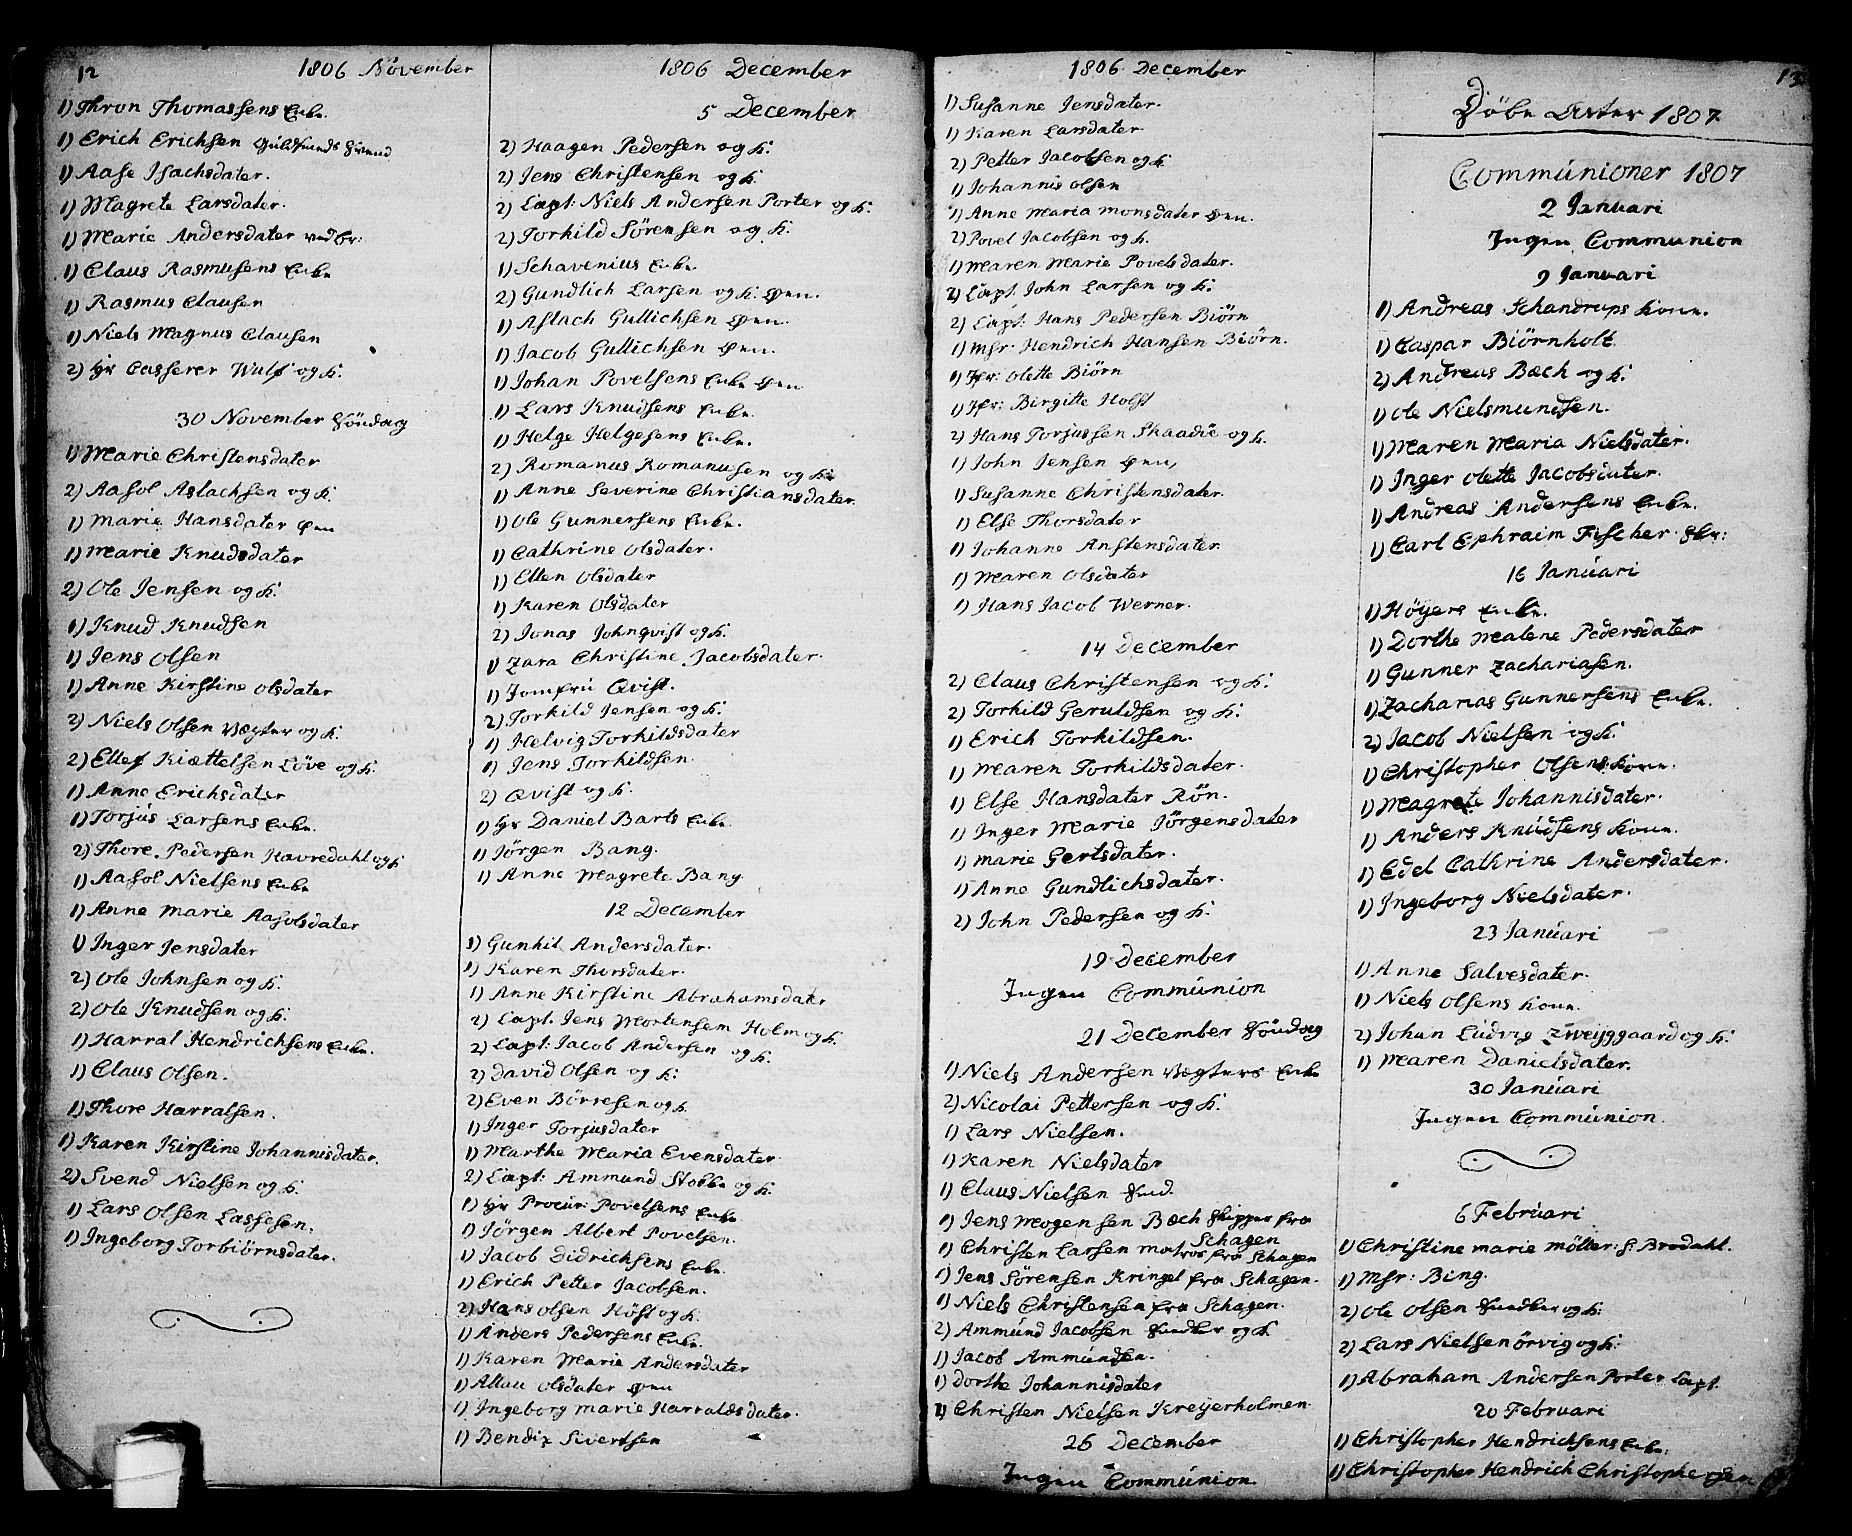 12
1806 November
1) Thron Thomassens Enke.
1) Erich Erichsen Guldsmeds Svend
1) Aase Isachsdater.
1) Magrete Larsdater.
1) Marie Andersdater
1) Claus Rasmusens Enke
1) Rasmus Clausen
1) Niels Magnus Clausen
2) Hr Casserer Wulf og K.
30 November Söndag
1) Marie Christensdater
2) Aasol Aslachsen og K.
1) Marie Hansdater
1) Marie Knudsdater
2) Ole Jensen og K.
1) Knud Knudsen
1) Jens Olsen
1) Anne Kirstine Olsdater
2) Niels Olsen Vægter og K.
2) Ellef Kiættelsen Löve og K.
1) Anne Erichsdater
1) Torjus Larsens Enke.
2) Thore Pedersen Havredahl og K
1) Aasol Nielsens Enke
1) Anne Marie Aasolsdater
1) Inger Jensdater
2) Ole Johnsen og K.
2) Ole Knudsen og K.
1) Harral Hendrichsens Enke.
1) Claus Olsen.
1) Thore Harralsen.
1) Karen Kirstine Johannisdater.
2) Svend Nielsen og K.
1) Lars Olsen Lassesen.
1) Ingeborg Torbiörnsdater.
1806 December
5 December
2) Haagen Pedersen og K.
2) Jens Christensen og K.
2) Capt: Niels Andersen Porter og K.
2) Torkild Sörensen og K.
1) Schavenius Enke
2) Gundlich Larsen og K.
1) Aslach Gullichsen
1) Jacob Gullichsen
1) Johan Povelsens Enke
1) Lars Knudsens Enke.
1) Helge Helgesens Enke.
2) Romanus Romanusen og K.
1) Anne Severine Christiansdater.
1) Ole Gunnersens Enke.
1) Cathrine Olsdater.
1) Ellen Olsdater
1) Karen Olsdater
2) Jonas Johnqvist og K.
1) Zara Christine Jacobsdater.
1) Jomfrú Qvist.
2) Torkild Jensen og K.
1) Helvig Torkildsdater
1) Jens Torkildsen.
2) Qvist og K.
1) Hr Daniel Barts Enke.
1) Jörgen Bang.
1) Anne Magrete Bang
12 December
1) Gunhil Andersdater.
1) Karen Thorsdater.
1) Anne Kirstine Abrahamsdater
2) Capt. Jens Mortensem Holm og K.
2) Capt: Jacob Andersen og K.
2) David Olsen og K:
2) Even Börresen og K.
1) Inger Torjusdater
1) Marthe Maria Evensdater
2) Capt: Ammund Stokke og K.
1) Hr Procur: Povelsens Enke
1) Jörgen Albert Povelsen.
1) Jacob Didrichsens Enke.
1) Erich Petter Jacobsen.
2) Hans Olsen Höst og K.
1) Anders Pedersens Enke.
1) Karen Marie Andersdater
1) Allau Olsdater
1) Ingeborg Marie Harraldsdater.
1) Bendix Sivertsen
1806 December
1) Susanne Jensdater.
1) Karen Larsdater
2) Petter Jacobsen og K.
1) Johannis Olsen
1) Anne Maria Monsdater
2) Povel Jacobsen og K.
1) Maren Marie Povelsdater.
2) Capt. John Larsen og K.
2) Capt: Hans Pedersen Biörn
1) Msr: Hendrich Hansen Biörn.
1) Jfr: Olette Biörn
1) Jfr: Birgitte Holst
2) Hans Torjussen Skaadie og K.
1) John Jensen
1) Susanne Christensdater.
1) Else Thorsdater
1) Johanne Anstensdater
1) Maren Olsdater
1) Hans Jacob Werner.
14 December
2) Claus Christensen og K.
2) Torkild Geruldsen og K.
1) Erich Torkildsen.
1) Maren Torkildsdater.
1) Else Hansdater Rön.
1) Inger Marie Jörgensdater
1) Marie Gertsdater.
1) Anne Gundlichsdater.
2) John Pedersen og K.
19 December
Ingen Communion
21 December Söndag
1) Niels Andersen Vægters Enke
2) Nicolai Pettersen og K.
1) Lars Nielsen.
1) Karen Nielsdater
1) Claus Nielsen
1) Jens Mogensen Bæch Skipper fra
Schagen
1) Christen Larsen matros fra Schagen
1) Jens Sörensen Kringel fra Schagen.
1) Niels Christensen fra Schagen.
2) Ammund Jacobsen og K
1) Jacob Ammundsen.
1) Dorthe Johannisdater
2) Christen Nielsen Kreyerholmen
26 December
Ingen Communion
13
Döbe Acter 1807
Communioner 1807
2 Januari
Ingen Communion
9 Januari
1) Andreas Schandrups Kone.
1) Caspar Biörnholt
2) Andreas Bæch og K.
1) Ole Nielsmundsen.
1) Maren Maria Nielsdater.
1) Inger Olette Jacobsdater.
1) Andreas Andersens Enke.
1) Carl Ephraim Fischer
16 Januari
1) Höyers Enke.
1) Dorthe Malene Pedersdater
1) Gunner Zachariasen.
1) Zacharias Gunnersens Enke.
2) Jacob Nielsen og K.
1) Christopher Olsens Kone.
1) Magrete Johannisdater.
1) Anders Knudsens Kone.
1) Edel Cathrine Andersdater.
1) Ingeborg Nielsdater.
23 Januari
1) Anne Salvesdater.
1) Niels Olsens Kone.
2) Johan Ludvig Zweyggaard og K.
1) Maren Danielsdater.
30 Januari
Ingen Communion.
6 Februari
1) Christine Marie Möller: f: Bredahl.
1) Msr: Bing.
2) Ole Olsen og K.
2) Lars Nielsen Örvig og K.
1) Abraham Andersen Porter Capt.
20 Februari
1) Christopher Hendrichsens Enke.
1) Christopher Hendrich Christophersen